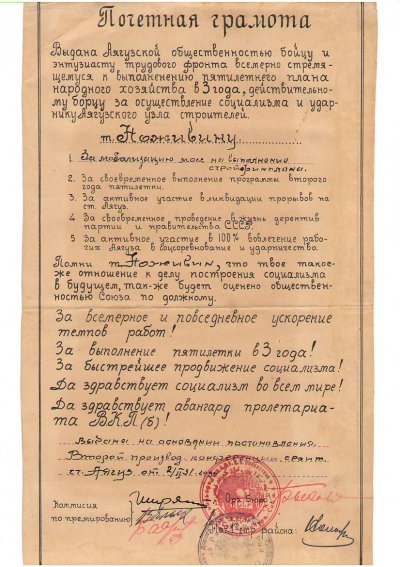 Почетная грамота
Выдана Аягузской общественностью бойцу и
энтузиасту трудового фронта всемерно стремя-
щемуся к выполенению пятилетнего плана
народного хозяйства в 3 года, действительно-
му борцу за осуществление социализма и удар-
нику Аягузского узла строителей.
т. Поживину
1. За мобализацию мас на выполнение
стройфинплана.
2. За своевременное выполнение программы второго
года пятилетки.
3. За активное участие в ликвидации прорывов на
ст. Аягуз.
4. За своевременное проведение в жизнь деректив
партии и правительства СССР.
5. За активное участие в 100% вовлечение рабо-
чих Аягуза в соцсоревнование и ударничество.
Помни т. Поживин, что твое такое-
же отношение к делу построения социализма
в будущем, так-же будет оценено обществен-
ностью Союза по должному.
За всемерное и повседневное ускорение
темпов работ!
За выполнение пятилетки в 3 года!
За быстрейшее продвижение социализма!
Да здравствует социализм во всем мире!
Да здравствует авангард пролетариа-
та ВКП(б)!
Выдана на основании постановления
Второй производ. конференции строит.
ст. Аягуз от 2/II-31 года
Комиссия
по премированию
Орг. бюро
района: